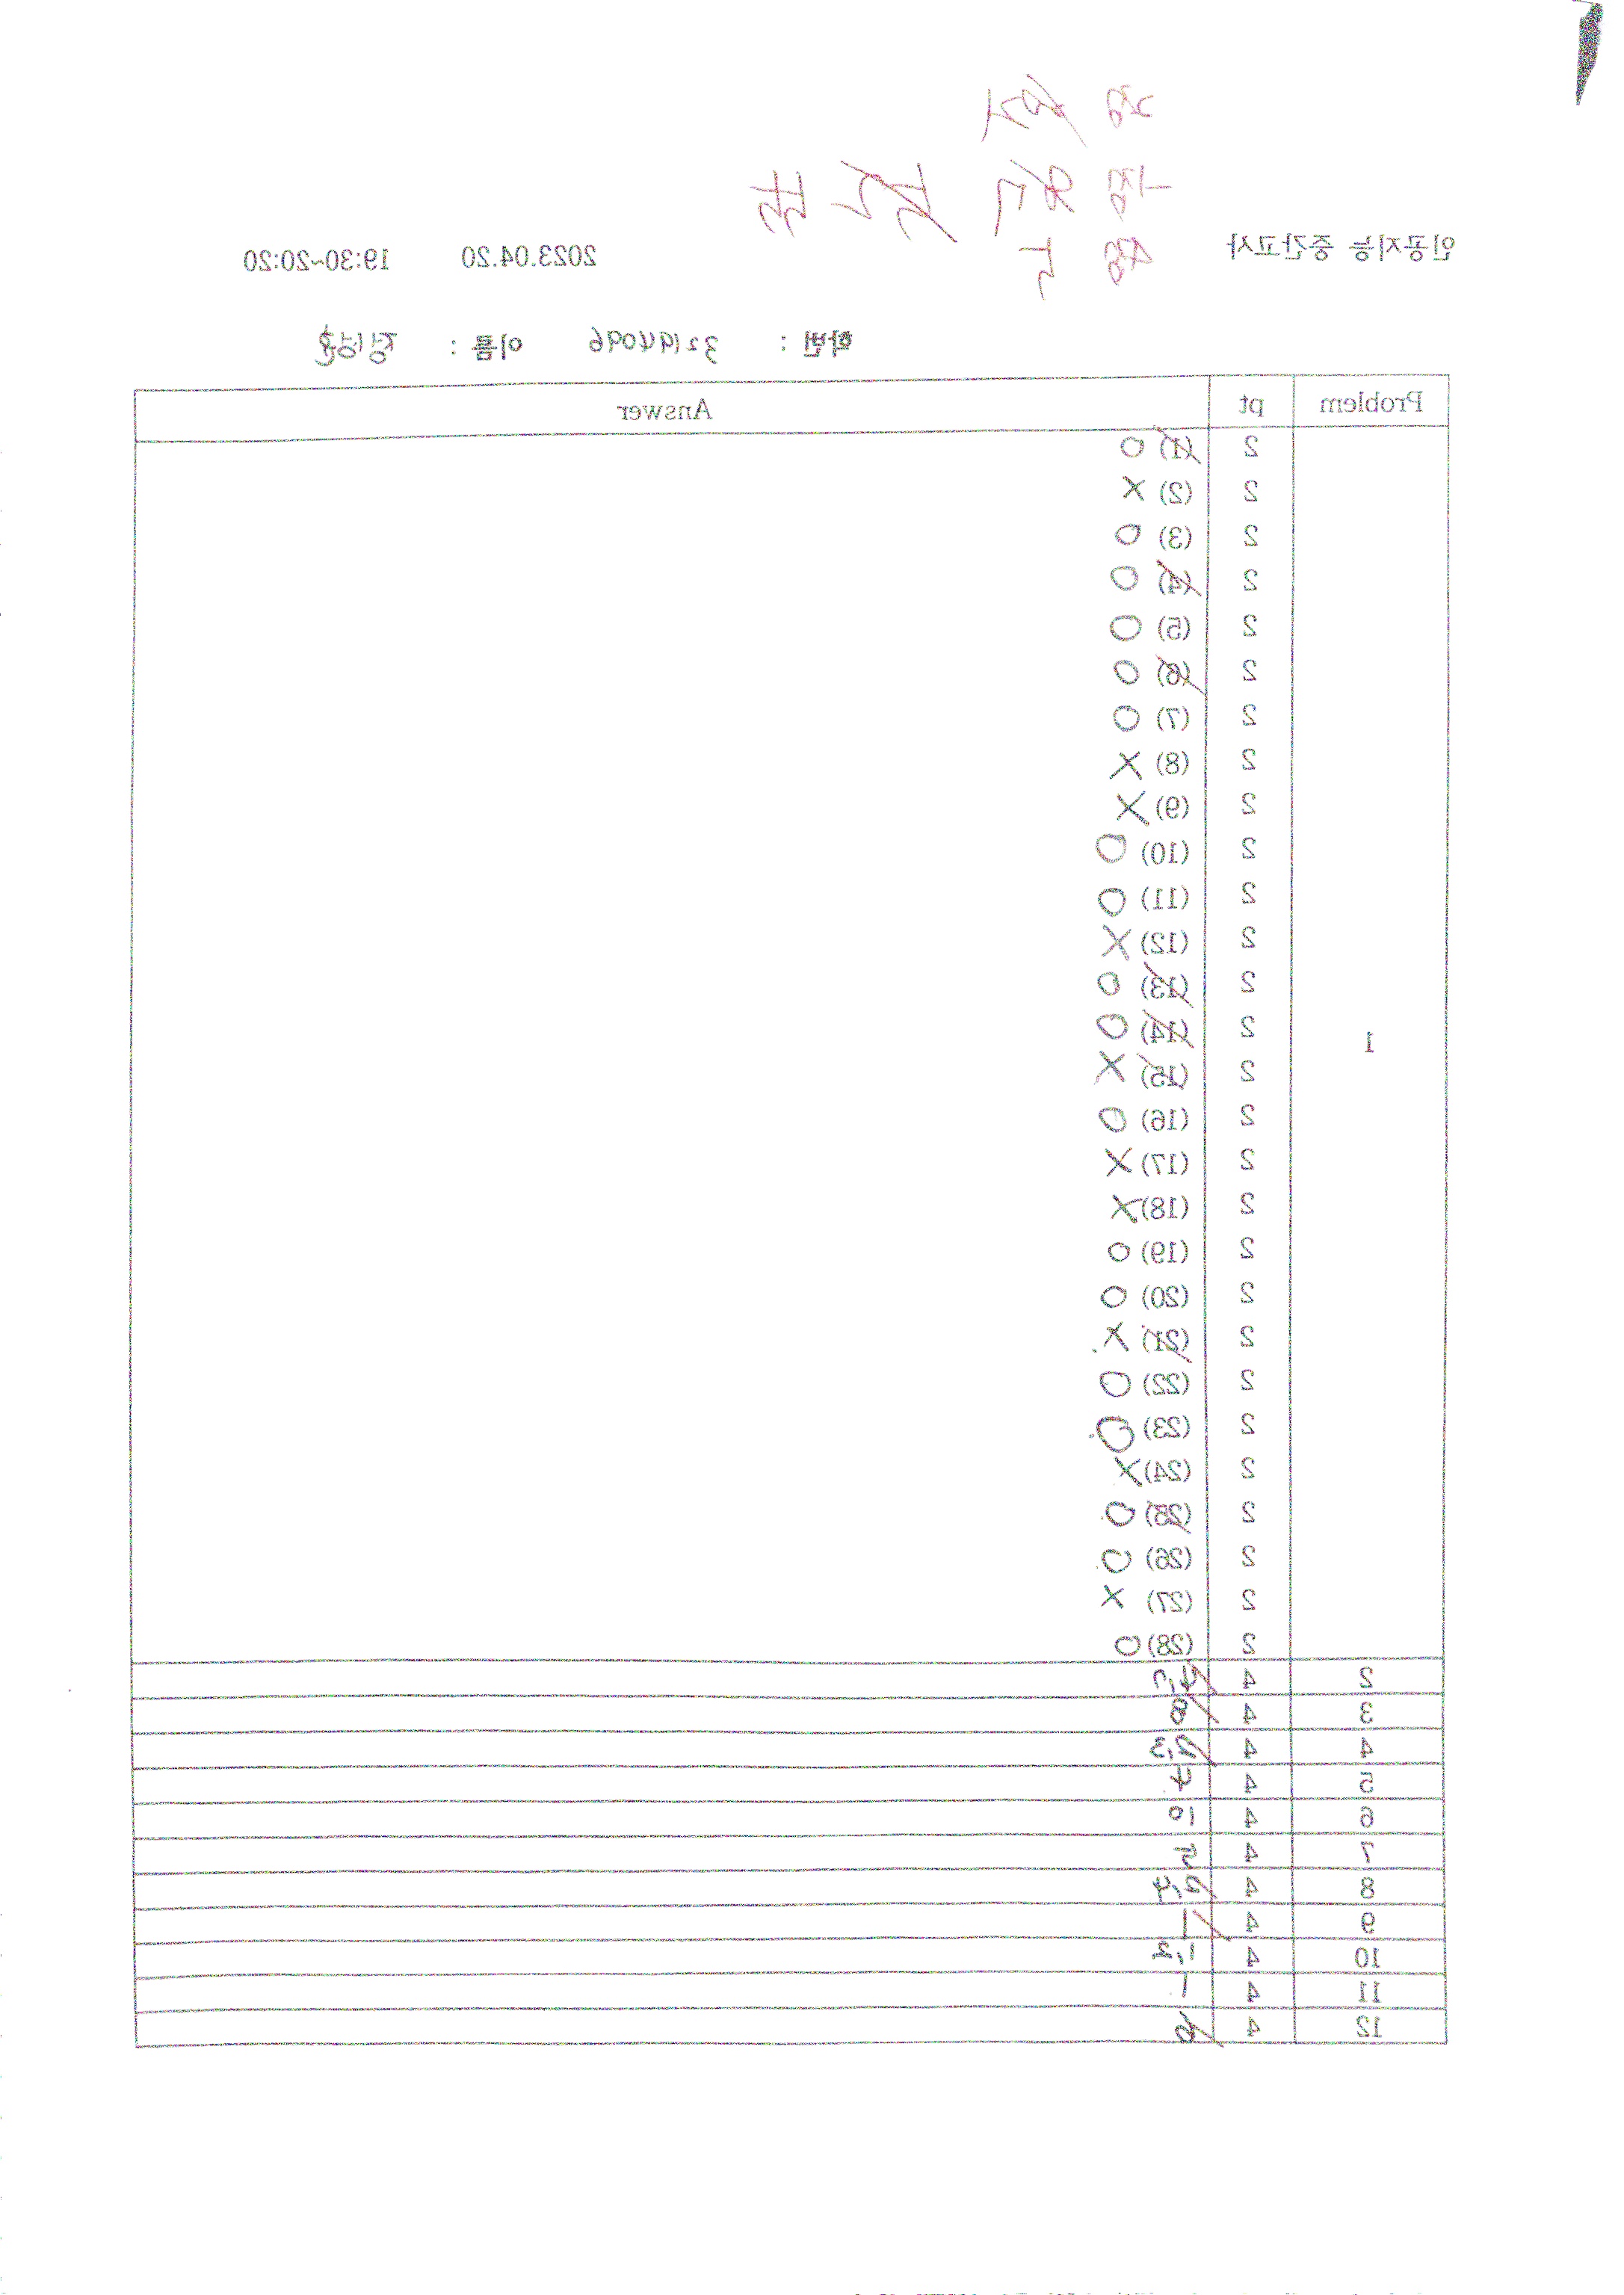 인공지능 중간고사 2023.04.20 19:30~20:20
학번 : 32194096 이름 :
Problem pt Answer
1
2 (1) O
2 (2) X
2 (3) O
2 (4) O
2 (5) O
2 (6) O
2 (7) O
2 (8) X
2 (9) X
2 (10) O
2 (11) O
2 (12) X
2 (13) O
2 (14) O
2 (15) X
2 (16) O
2 (17) X
2 (18) X
2 (19) O
2 (20) O
2 (21) X
2 (22) O
2 (23) O
2 (24) X
2 (25) O
2 (26) O
2 (27) X
2 (28) O
2 4
3 4 8
4 4 2,3
5 4 4
6 4 10
7 4 5
8 4 2,4
9 4 1
10 4 1,2
11 4 1
12 4 6